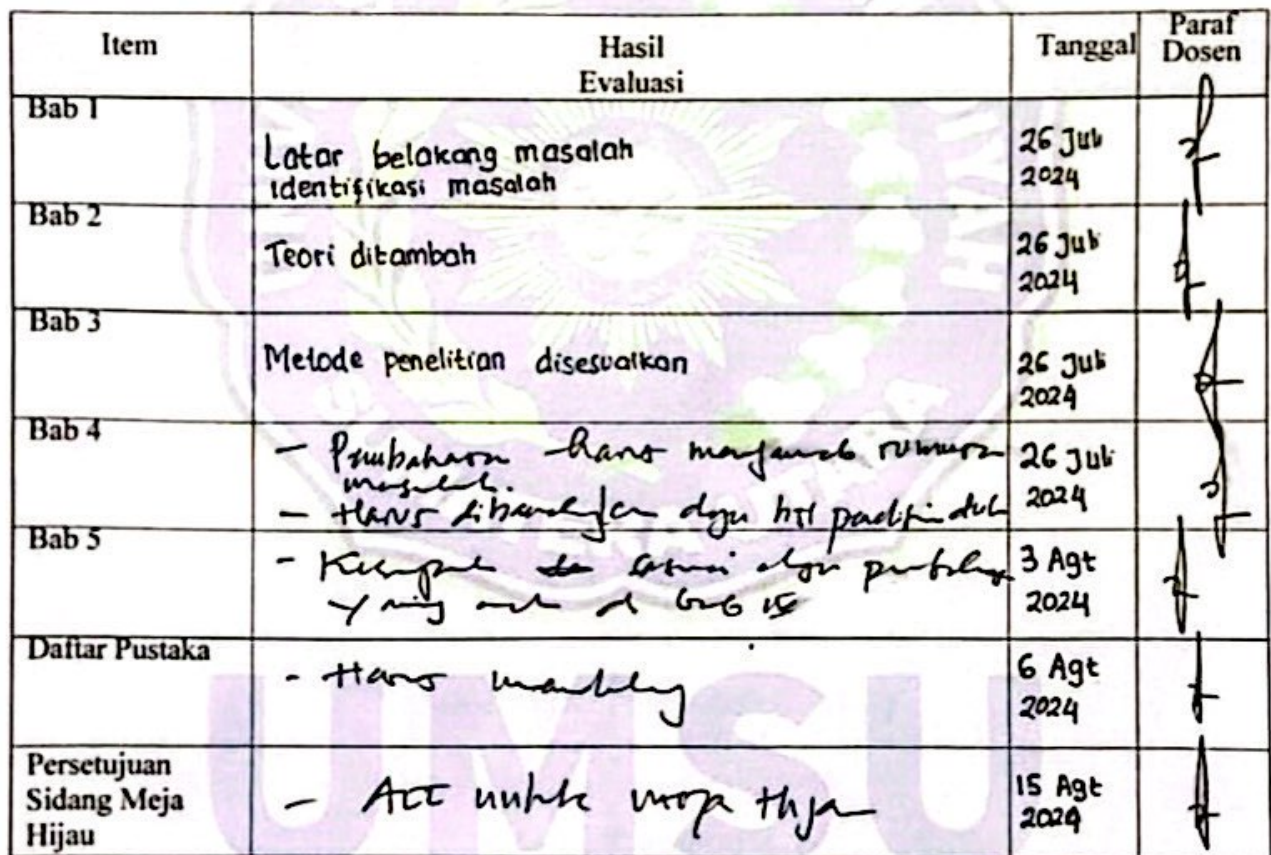 Item Hasil Evaluasi Tanggal Paraf Dosen
Bab 1
Latar belakang masalah
identifikasi masalah
26 Juli 2024
Bab 2
Teori ditambah
26 Juli 2024
Bab 3
Metode penelitian disesuaikan
26 Juli 2024
Bab 4
- Pembahasan harus menjawab rumusan
masalah.
- Harus dibandingkan dgn
26 Juli 2024
Bab 5
- Kesimpulan sesuai dgn
yang di bab IV
3 Agt 2024
Daftar Pustaka
- Harus
6 Agt 2024
Persetujuan
Sidang Meja
Hijau
- Acc untuk meja hijau
15 Agt 2024
UMSU